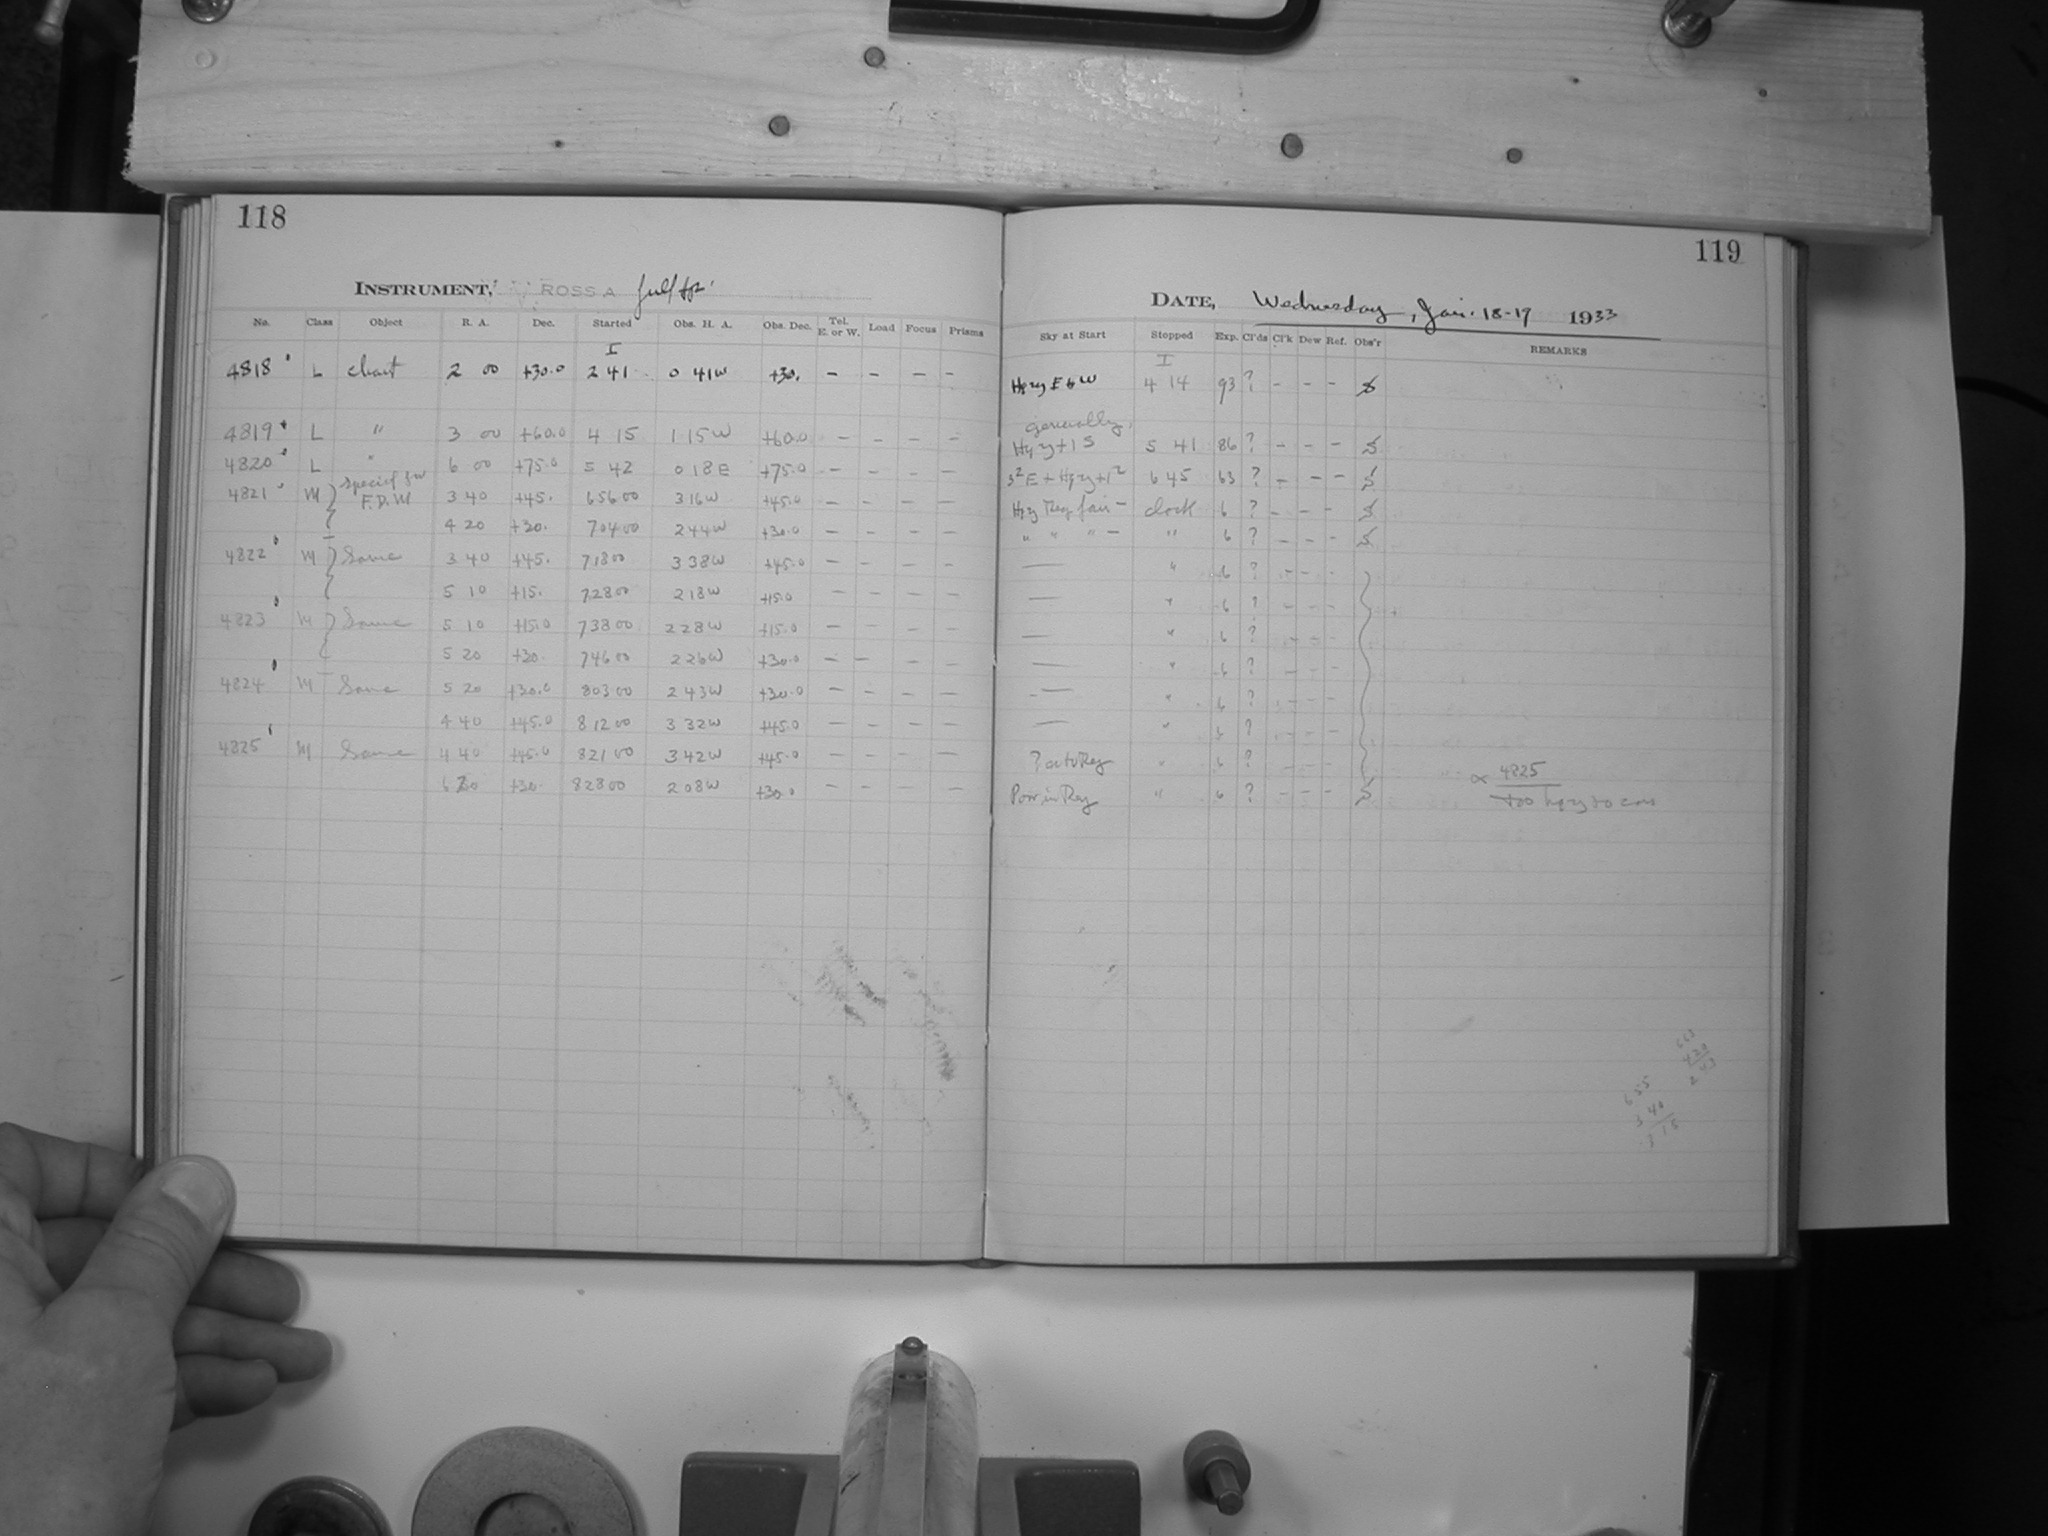 118
INSTRUMENT, ROSS A full ap.
No. Class Object R. A. Dec. Started Obs. H. A. Obs. Dec. Tel. E. or W. Load Focus Prisms
I
4818 L chart 2 00 +30.0 2 41 0 41 W +30. - - - -
4819 L " 3 00 +60.0 4 15 1 15 W +60.0 - - - -
4820 L " 6 00 +75.0 5 42 0 18 E +75.0 - - - -
4821 M Special for F.D.M 3 40 +45. 6 56 00 3 16 W +45.0 - - - -
4 20 +30. 7 04 00 2 44 W +30.0 - - - -
4822 M Same 3 40 +45. 7 18 00 3 38 W +45.0 - - - -
5 10 +15. 7 28 00 2 18 W +15.0 - - - -
4823 M Same 5 10 +15.0 7 38 00 2 28 W +15.0 - - - -
5 20 +30. 7 46 00 2 26 W +30.0 - - - -
4824 M Same 5 20 +30.0 8 03 00 2 43 W +30.0 - - - -
4 40 +45.0 8 12 00 3 32 W +45.0 - - - -
4825 M Same 4 40 +45.0 8 21 00 3 42 W +45.0 - - - -
+30. 8 28 00 2 08 W +30.0 - - - -
119
DATE, Wednesday, Jan. 18-19 1933
Sky at Start Stopped Exp. Cl'ds Cl'k Dew Ref. Obs'r REMARKS
I
Hzy E & W 4 14 93 ? - - - S
generally
Hzy + 1 S 5 41 86 ? - - - S
6 45 63 ? - - - S
Hzy Reg fair - clock 6 ? - - - S
" " " - " 6 ? - - - S
— " 6 ? - - -
— " 6 ? - - -
— " 6 ? - - -
— " 6 ? - - -
— " 6 ? - - -
— " 6 ? - - -
Reg " 6 ? - - -
Poor in Reg " 6 ? - - - S
4825
too hazy to
655
3 40
3 15